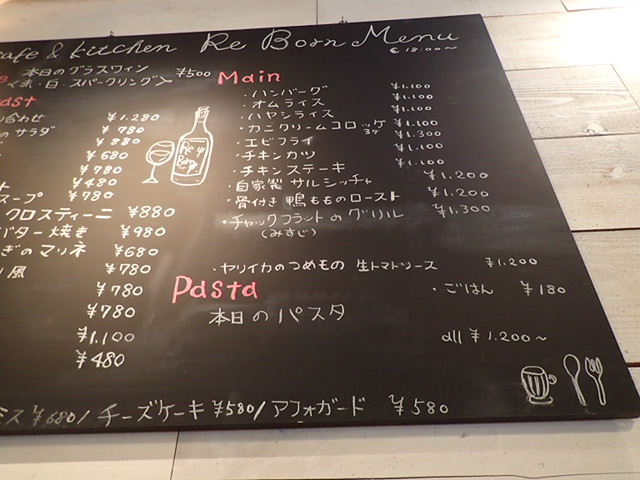 cafe & kitchen Re Born Menu
18:00〜
本日のグラスワイン ¥500
・白・スパークリング〉
Main
・ハンバーグ ¥1.100
・オムライス ¥1.100
・ハヤシライス ¥1.100
・カニクリームコロッケ ¥1.100
・エビフライ ¥1.300
・チキンカツ ¥1.100
・チキンステーキ ¥1.100
・自家製 サルシッチャ ¥1.200
・骨付き鴨もものロースト ¥1.200
・チャックフラットのグリル ¥1.300
(みすじ)
・ヤリイカのつめもの 生トマトソース ¥1.200
Pasta
・ごはん ¥180
本日のパスタ
all ¥1.200〜
い合わせ ¥1.280
のサラダ ¥780
¥880
¥680
¥780
ト ¥480
スープ ¥780
クロスティーニ ¥880
バター焼き ¥980
ぎのマリネ ¥680
風 ¥780
¥780
¥780
¥1.100
¥480
Re Born
ミス ¥680/チーズケーキ ¥580/アフォガード ¥580